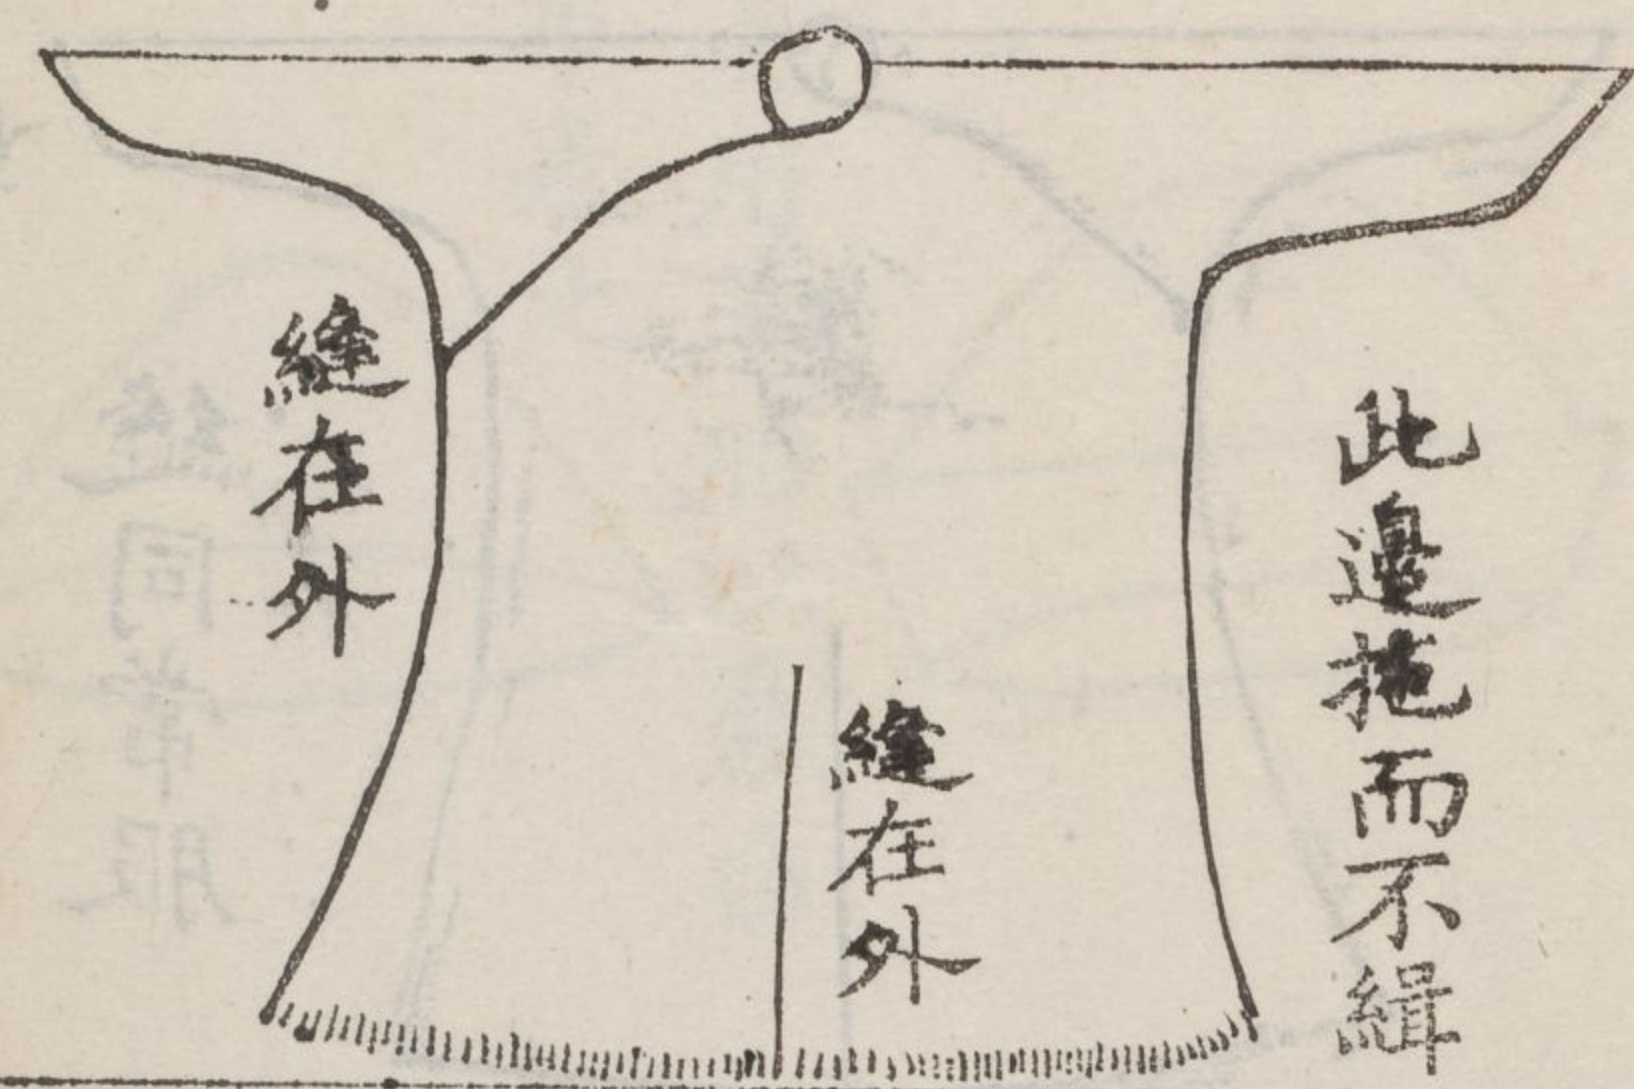 此邊拖而不緝
縫在外
縫在外